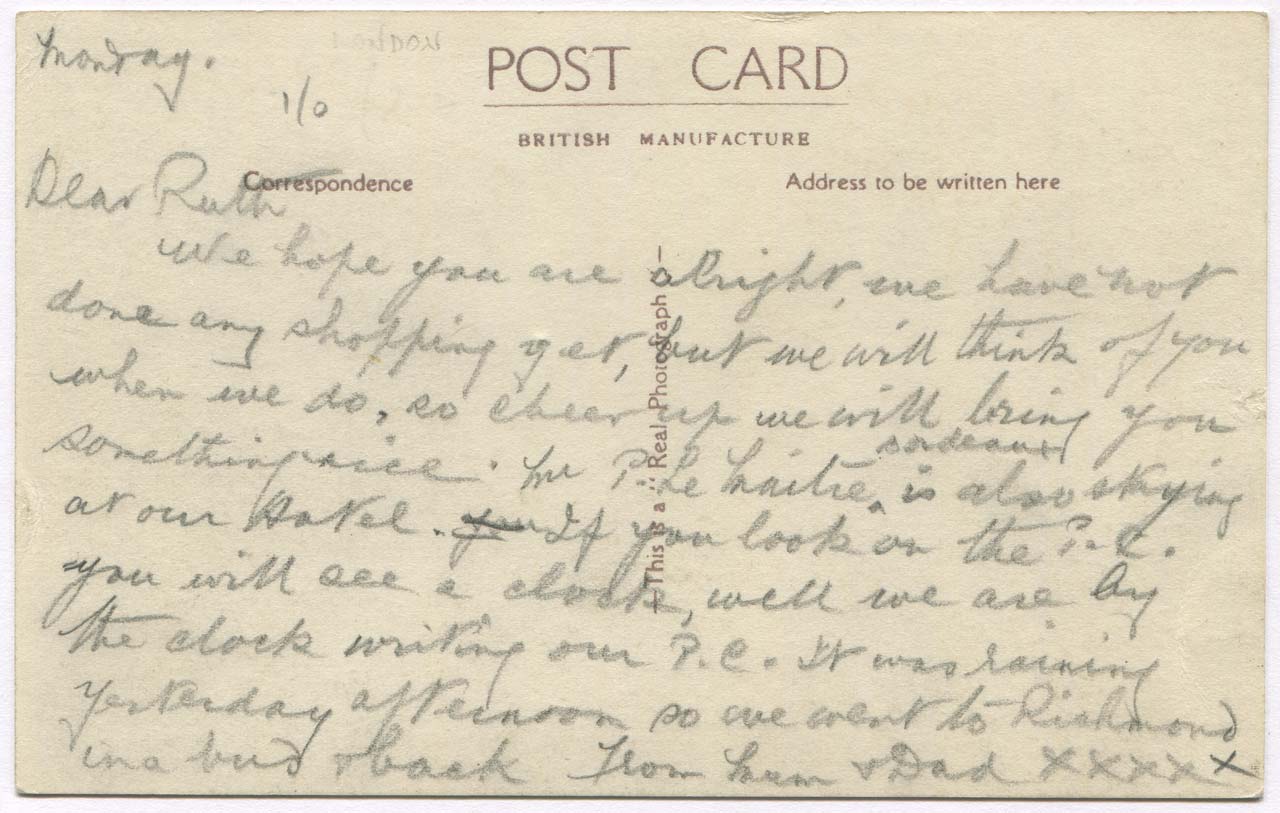 Monday.
LONDON
POST CARD
1/0
BRITISH MANUFACTURE
Correspondence
Address to be written here
Dear Ruth
We hope you are alright, we have not
done any shopping yet, but we will think of you
when we do, so cheer up we will bring you
something nice. Mr P. Le Maitre is also staying
at our Hotel. If you look on the P.C.
you will see a clock, well we are by
the clock writing our P.C. It was raining
yesterday afternoon so we went to Richmond
in a bus & back From Mum & Dad XXXXX
This is a Real Photograph